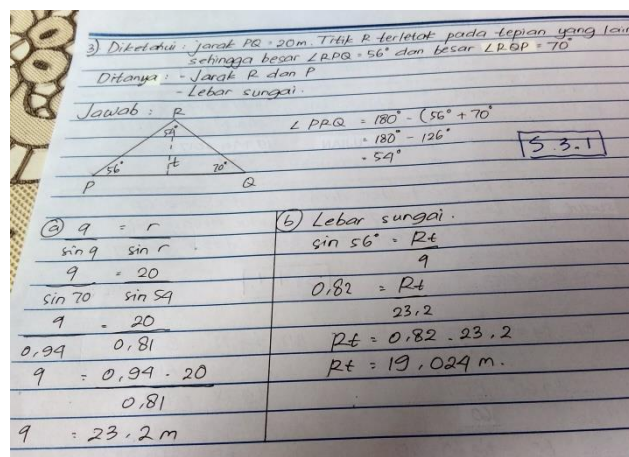 3) Diketahui : jarak PQ = 20m. Titik R terletak pada tepian yang lain
sehingga besar ∠RPQ = 56° dan besar ∠RQP = 70°
Ditanya : - Jarak R dan P
- Lebar sungai.
Jawab :
R
54°
56°
t
70°
P
Q
∠PRQ = 180° - (56° + 70°
= 180° - 126°
= 54°
S.3.1
(a) q = r
sin q sin r
q = 20
sin 70 sin 54
q = 20
0,94 0,81
q = 0,94 . 20
0,81
q = 23,2 m
(b) Lebar sungai.
sin 56° = Rt
q
0,82 = Rt
23,2
Rt = 0,82 . 23,2
Rt = 19,024 m.